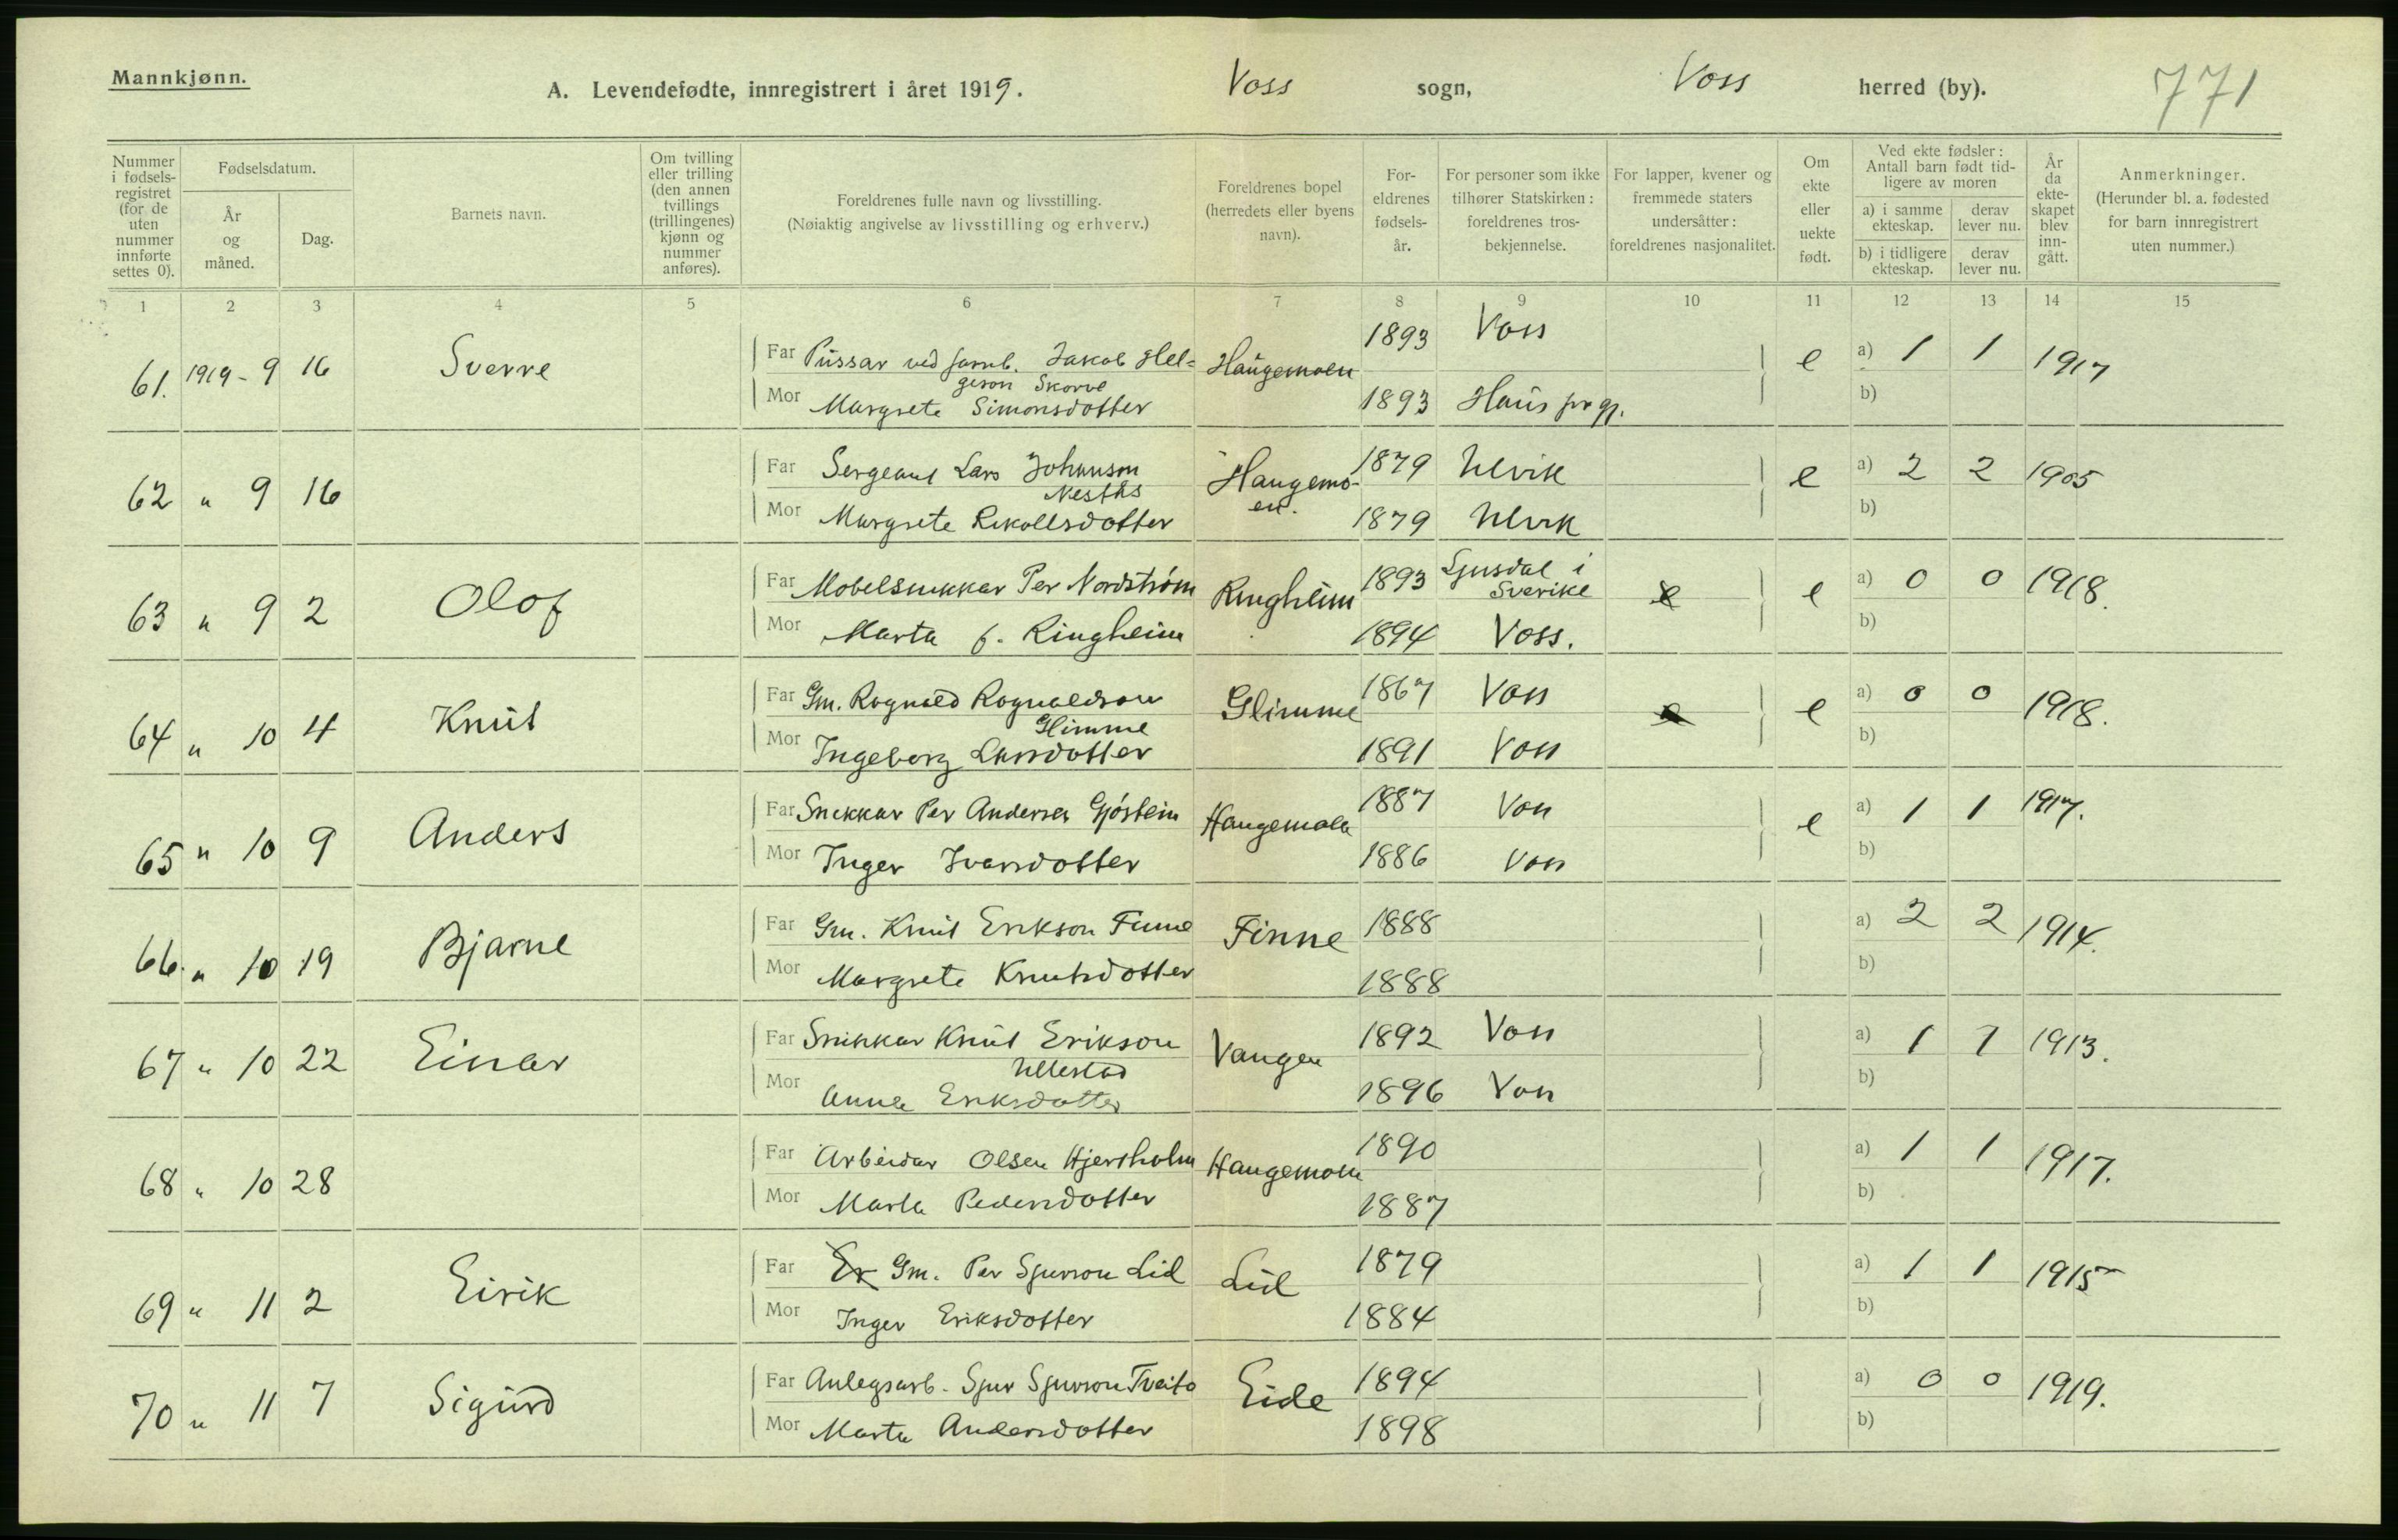 Mannkjønn.
A. Levendefødte, innregistrert i året 1919. Voss sogn, Voss herred (by). 771
Nummer i fødselsregistret (for de uten nummer innførte settes 0).
Fødselsdatum.
År og måned.
Dag.
Barnets navn.
Om tvilling eller trilling (den annen tvillings (trillingenes) kjønn og nummer anføres).
Foreldrenes fulle navn og livsstilling.
(Nøiaktig angivelse av livsstilling og erhverv.)
Foreldrenes bopel (herredets eller byens navn).
Foreldrenes fødselsår.
For personer som ikke tilhører Statskirken: foreldrenes trosbekjennelse.
For lapper, kvener og fremmede staters undersåtter: foreldrenes nasjonalitet.
Om ekte eller uekte født.
Ved ekte fødsler: Antall barn født tidligere av moren
a) i samme ekteskap. derav lever nu.
b) i tidligere ekteskap. derav lever nu.
År da ekteskapet blev inngått.
Anmerkninger.
(Herunder bl. a. fødested for barn innregistrert uten nummer.)
1 2 3 4 5 6 7 8 9 10 11 12 13 14 15
61. 1919-9 16 Sverre Far Pussar ved jarnb. Jakob Hel= Haugemoen 1893 Voss e a) 1 1 1917
geson Skorve
Mor Margrete Simonsdotter 1893 Haus pr gj. b)
62 " 9 16 Far Sergeant Lars Johanson Haugemo- 1879 Ulvik e a) 2 2 1905
Nestås en.
Mor Margrete Rikollsdotter 1879 Ulvik b)
63 " 9 2 Olof Far Mobelsnekkar Per Nordstrøm Ringheim 1893 Ljusdal i Sverike e e a) 0 0 1918.
Mor Marta f. Ringheim 1894 Voss. b)
64 " 10 4 Knut Far Gm. Rognald Rognaldson Glimme 1867 Voss e a) 0 0 1918.
Glimme
Mor Ingeborg Larsdotter 1891 Voss b)
65 " 10 9 Anders Far Snekkar Per Anderson Gjøstein Haugemoen 1887 Voss e a) 1 1 1917.
Mor Inger Ivarsdotter 1886 Voss b)
66. " 10 19 Bjarne Far Gm. Knut Erikson Finne Finne 1888 a) 2 2 1914.
Mor Margrete Knutsdotter 1888 b)
67 " 10 22 Einar Far Snikkar Knut Erikson Vangen 1892 Voss a) 1 1 1913.
Ullestad
Mor Anna Eriksdotter 1896 Voss b)
68 " 10 28 Far Arbeidar Olsen Hjertholm Haugemoen 1890 a) 1 1 1917.
Mor Marta Pedersdotter 1887 b)
69 " 11 2 Eirik Far Er Gm. Per Sjurson Lid Lid 1879 a) 1 1 1915
Mor Inger Eriksdotter 1884 b)
70 " 11 7 Sigurd Far Anlegsarb. Sjur Sjurson Tveito Eide 1894 a) 0 0 1919.
Mor Marta Andersdotter 1898 b)